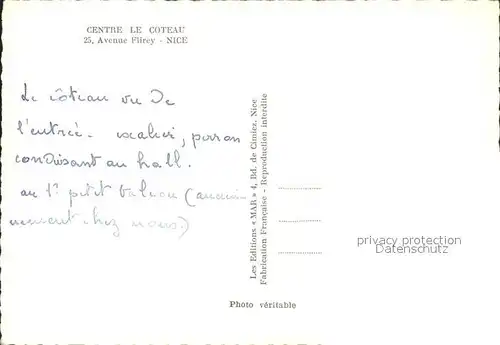 CENTRE LE COTEAU
25, Avenue Flirey - NICE
Le côteau vu de
l'entrée. escalier, perron
conduisant au hall.
au 1° petit balcon (ancien
nement chez nous.)
Les Editions « MAR » 4, Bd. de Cimiez. Nice
Fabrication Française - Reproduction interdite
privacy protection
Datenschutz
Photo véritable